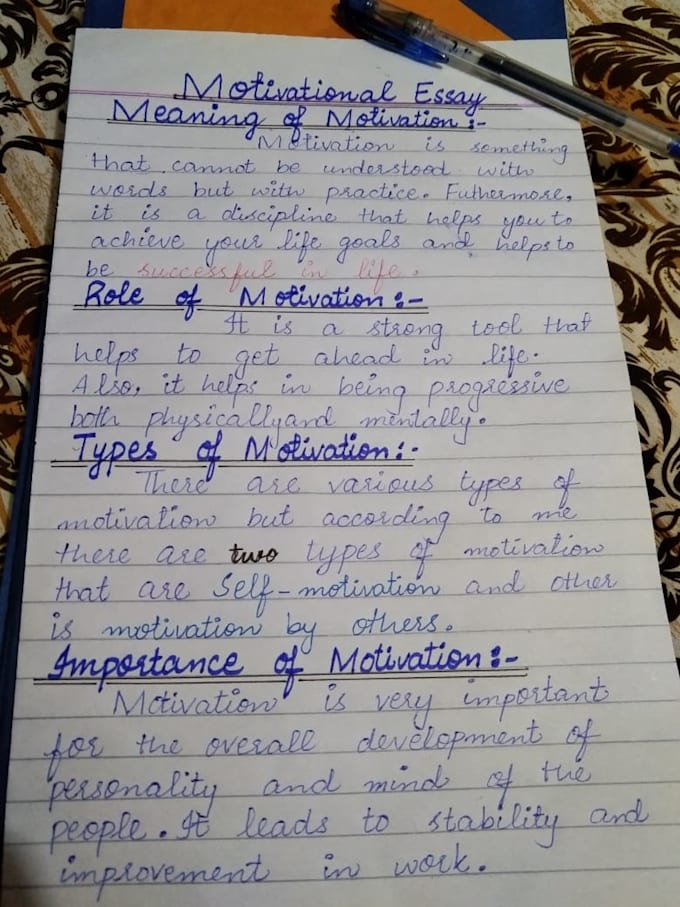 Motivational Essay
Meaning of Motivation:-
Motivation is something
that cannot be understood with
words but with practice. Futhermore,
it is a discipline that helps you to
achieve your life goals and helps to
be successful in life.
Role of Motivation:-
It is a strong tool that
helps to get ahead in life.
Also, it helps in being progressive
both physically and mentally.
Types of Motivation:-
There are various types of
motivation but according to me
there are two types of motivation
that are Self-motivation and other
is motivation by others.
Importance of Motivation:-
Motivation is very important
for the overall development of
personality and mind of the
people. It leads to stability and
improvement in work.